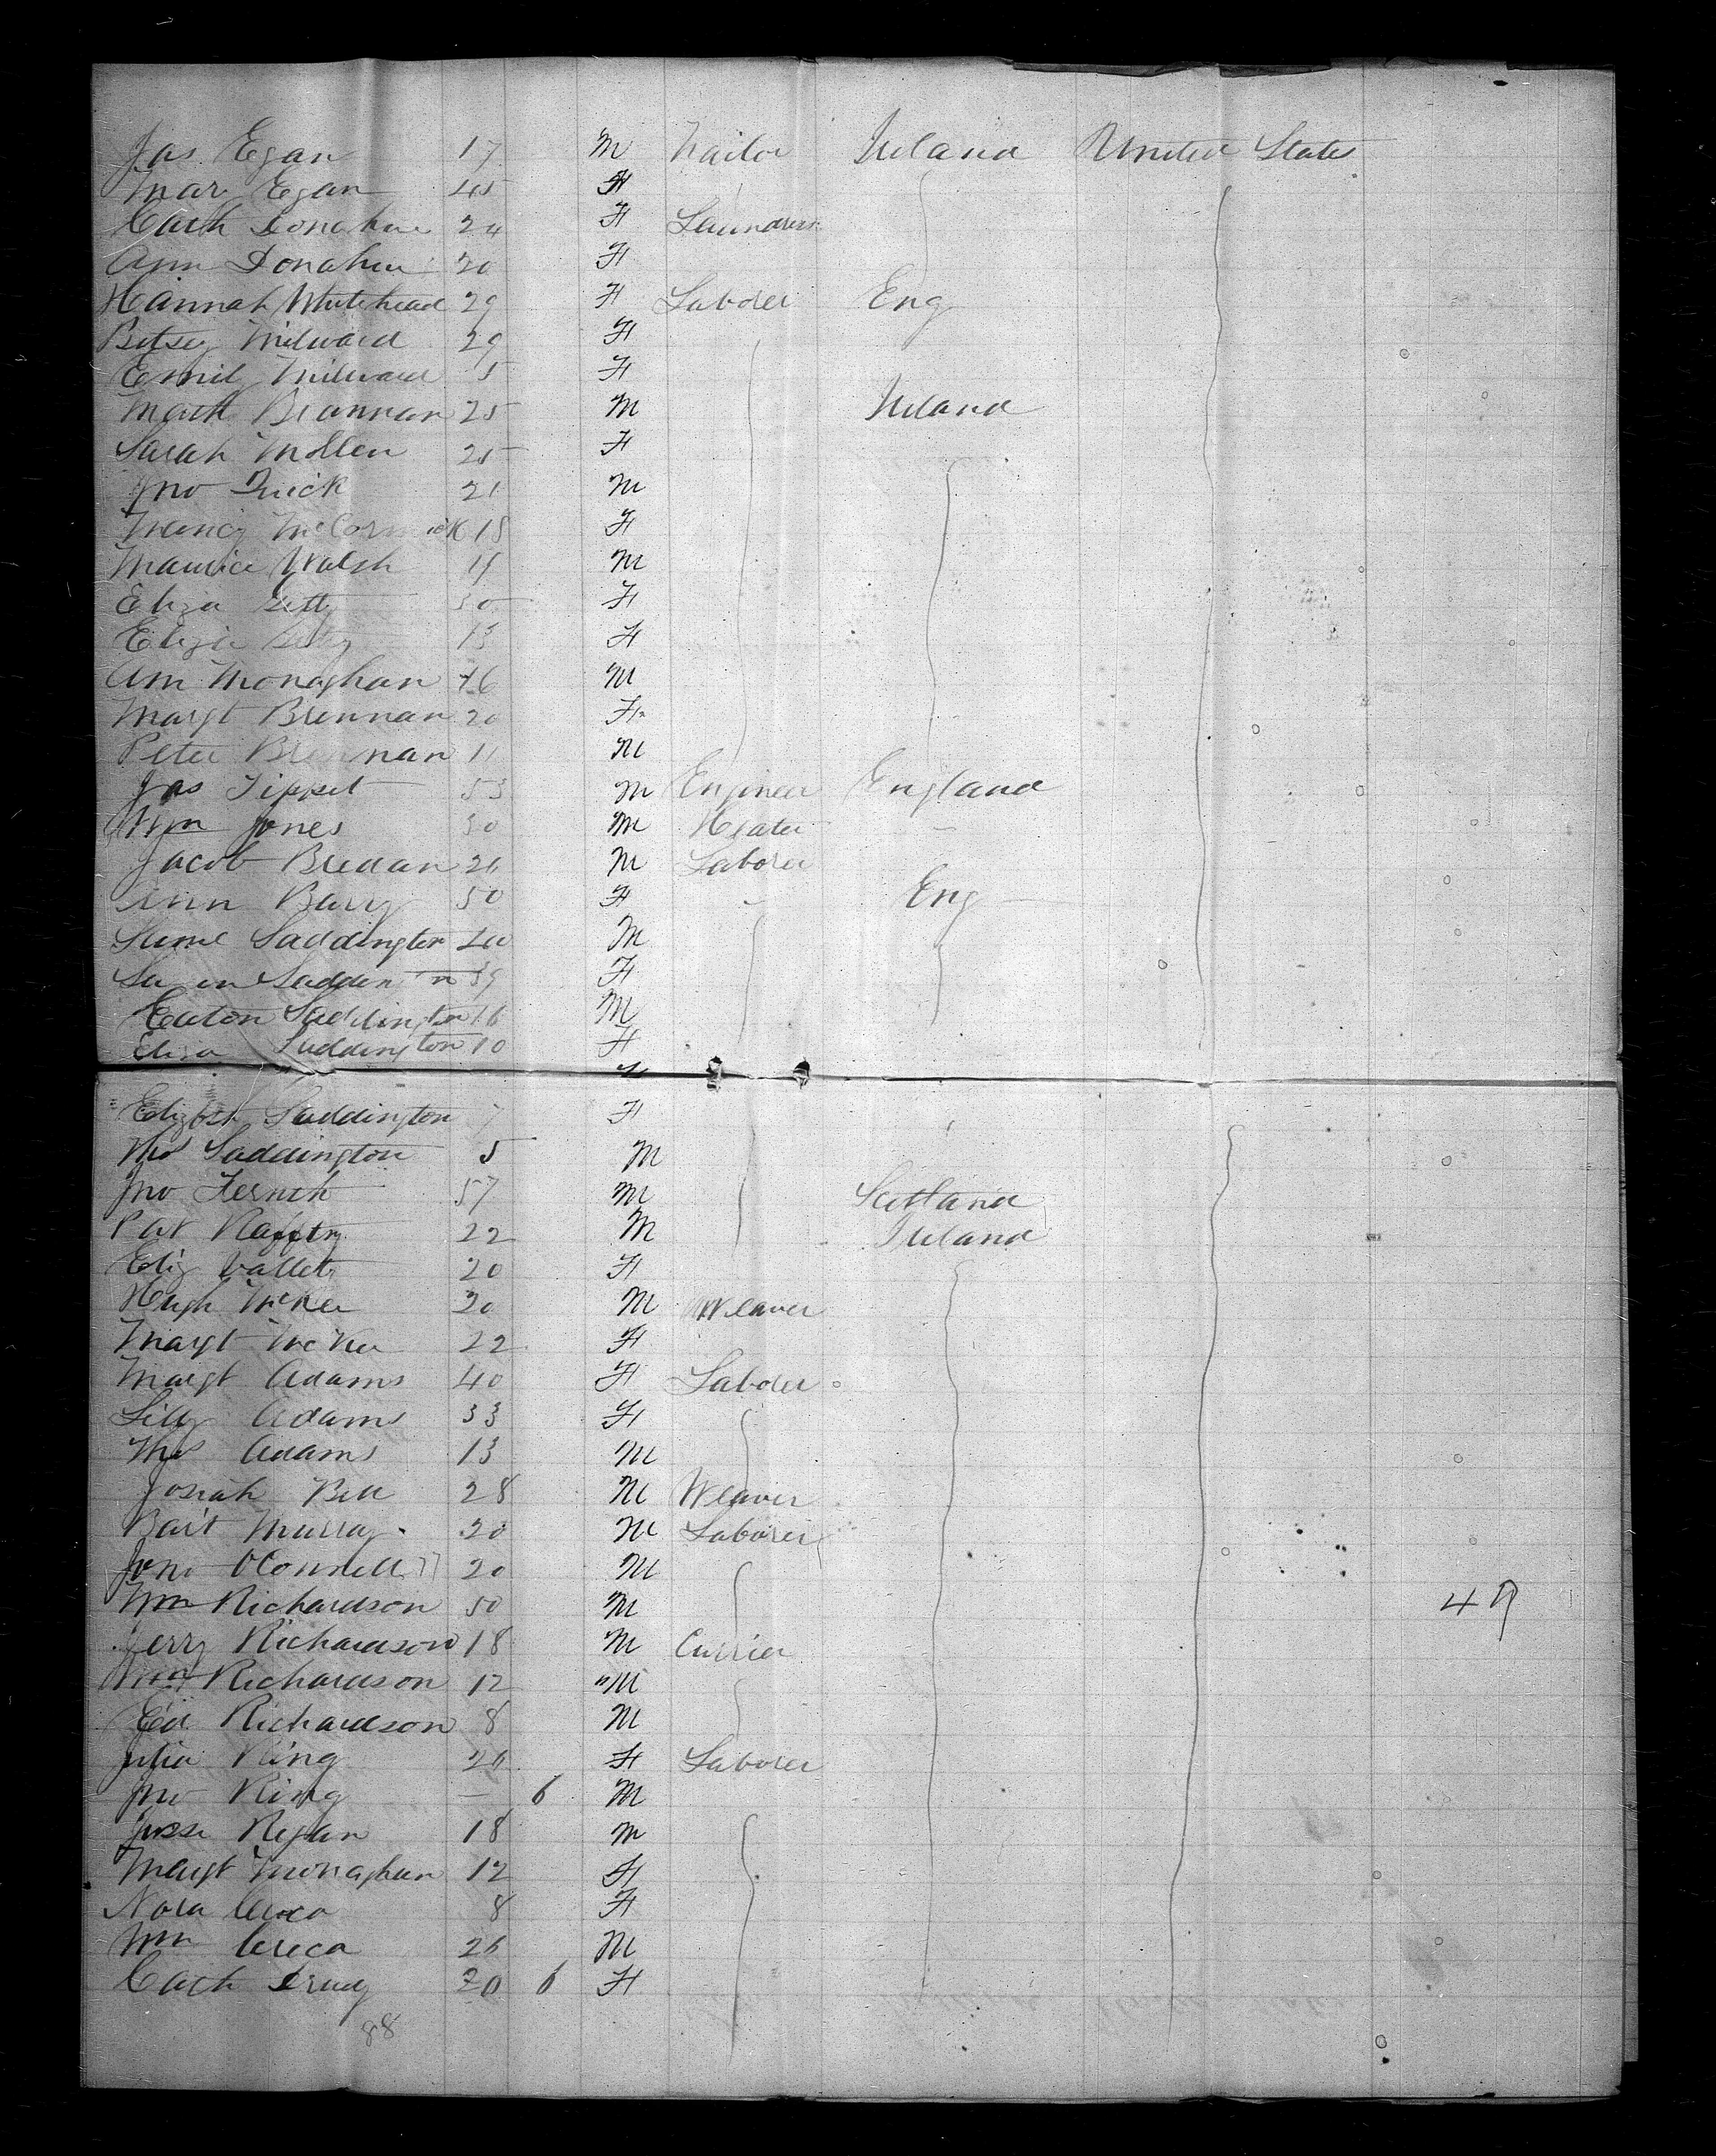 Jas Egan 17 M Tailor Ireland United States
Mar Egan 45 F
Cath Donahue 24 F Laundress
Ann Donahue 20 F
Hannah Whitehead 29 F Laborer Eng
Betsey Milward 29 F
Emily Milward 5 F
Math Brannan 25 M Ireland
Sarah Mollen 25 F
Jno Quick 21 M
Nancy McCormick 18 F
Maurice Walsh 19 M
Eliza Getty 30 F
Eliza Getty 13 F
Ann Monaghan 46 M
Margt Brennan 20 F
Peter Brennan 11 M
Jas Tippet 53 M Engineer England
Wm Jones 30 M Heater
Jacob Bredan 26 M Laborer
Ann Barry 50 F Eng
Saml Saddington 40 M
Saddington 39 F
Eaton Saddington 16 M
Eliza Saddington 10 F
Elizbth Saddington 7 F
Thos Saddington 5 M
Jno 57 M Scotland
Pat Rafftry 22 M Ireland
Eliz 20 F
Hugh McKee 20 M Weaver
Margt McKee 22 F
Margt Adams 40 F Laborer
Lilly Adams 33 F
Thos Adams 13 M
Josiah Bell 28 M Weaver
Bart Murray 20 M Laborer
Jno OConnell 20 M
Wm Richardson 50 M 49
Jerry Richardson 18 M Currier
Wm Richardson 12 M
Ed Richardson 8 M
Julia Ring 26 F Laborer
Jno Ring — 6 M
Jesse Regan 18 M
Margt Monaghan 12 F
Nora 8 F
Wm Creca 26 M
Cath 20 6 F
88